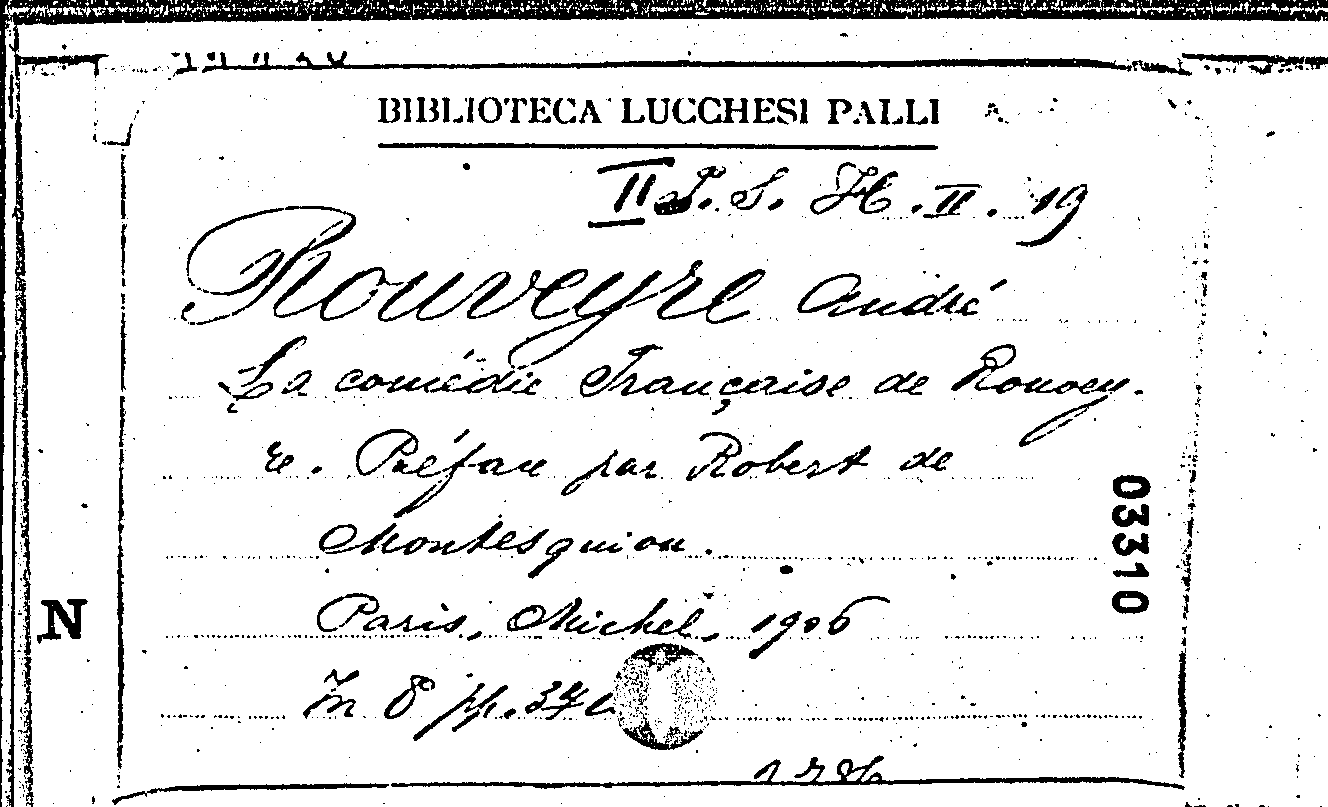 BIBLIOTECA LUCCHESI PALLI
II P. S. H. II. 19
Rouveyre André
La comédie Française de Rouvey-
re. Préface par Robert de
Montesquiou.
Paris, Michel, 1906
In 8 pp.
03310
N